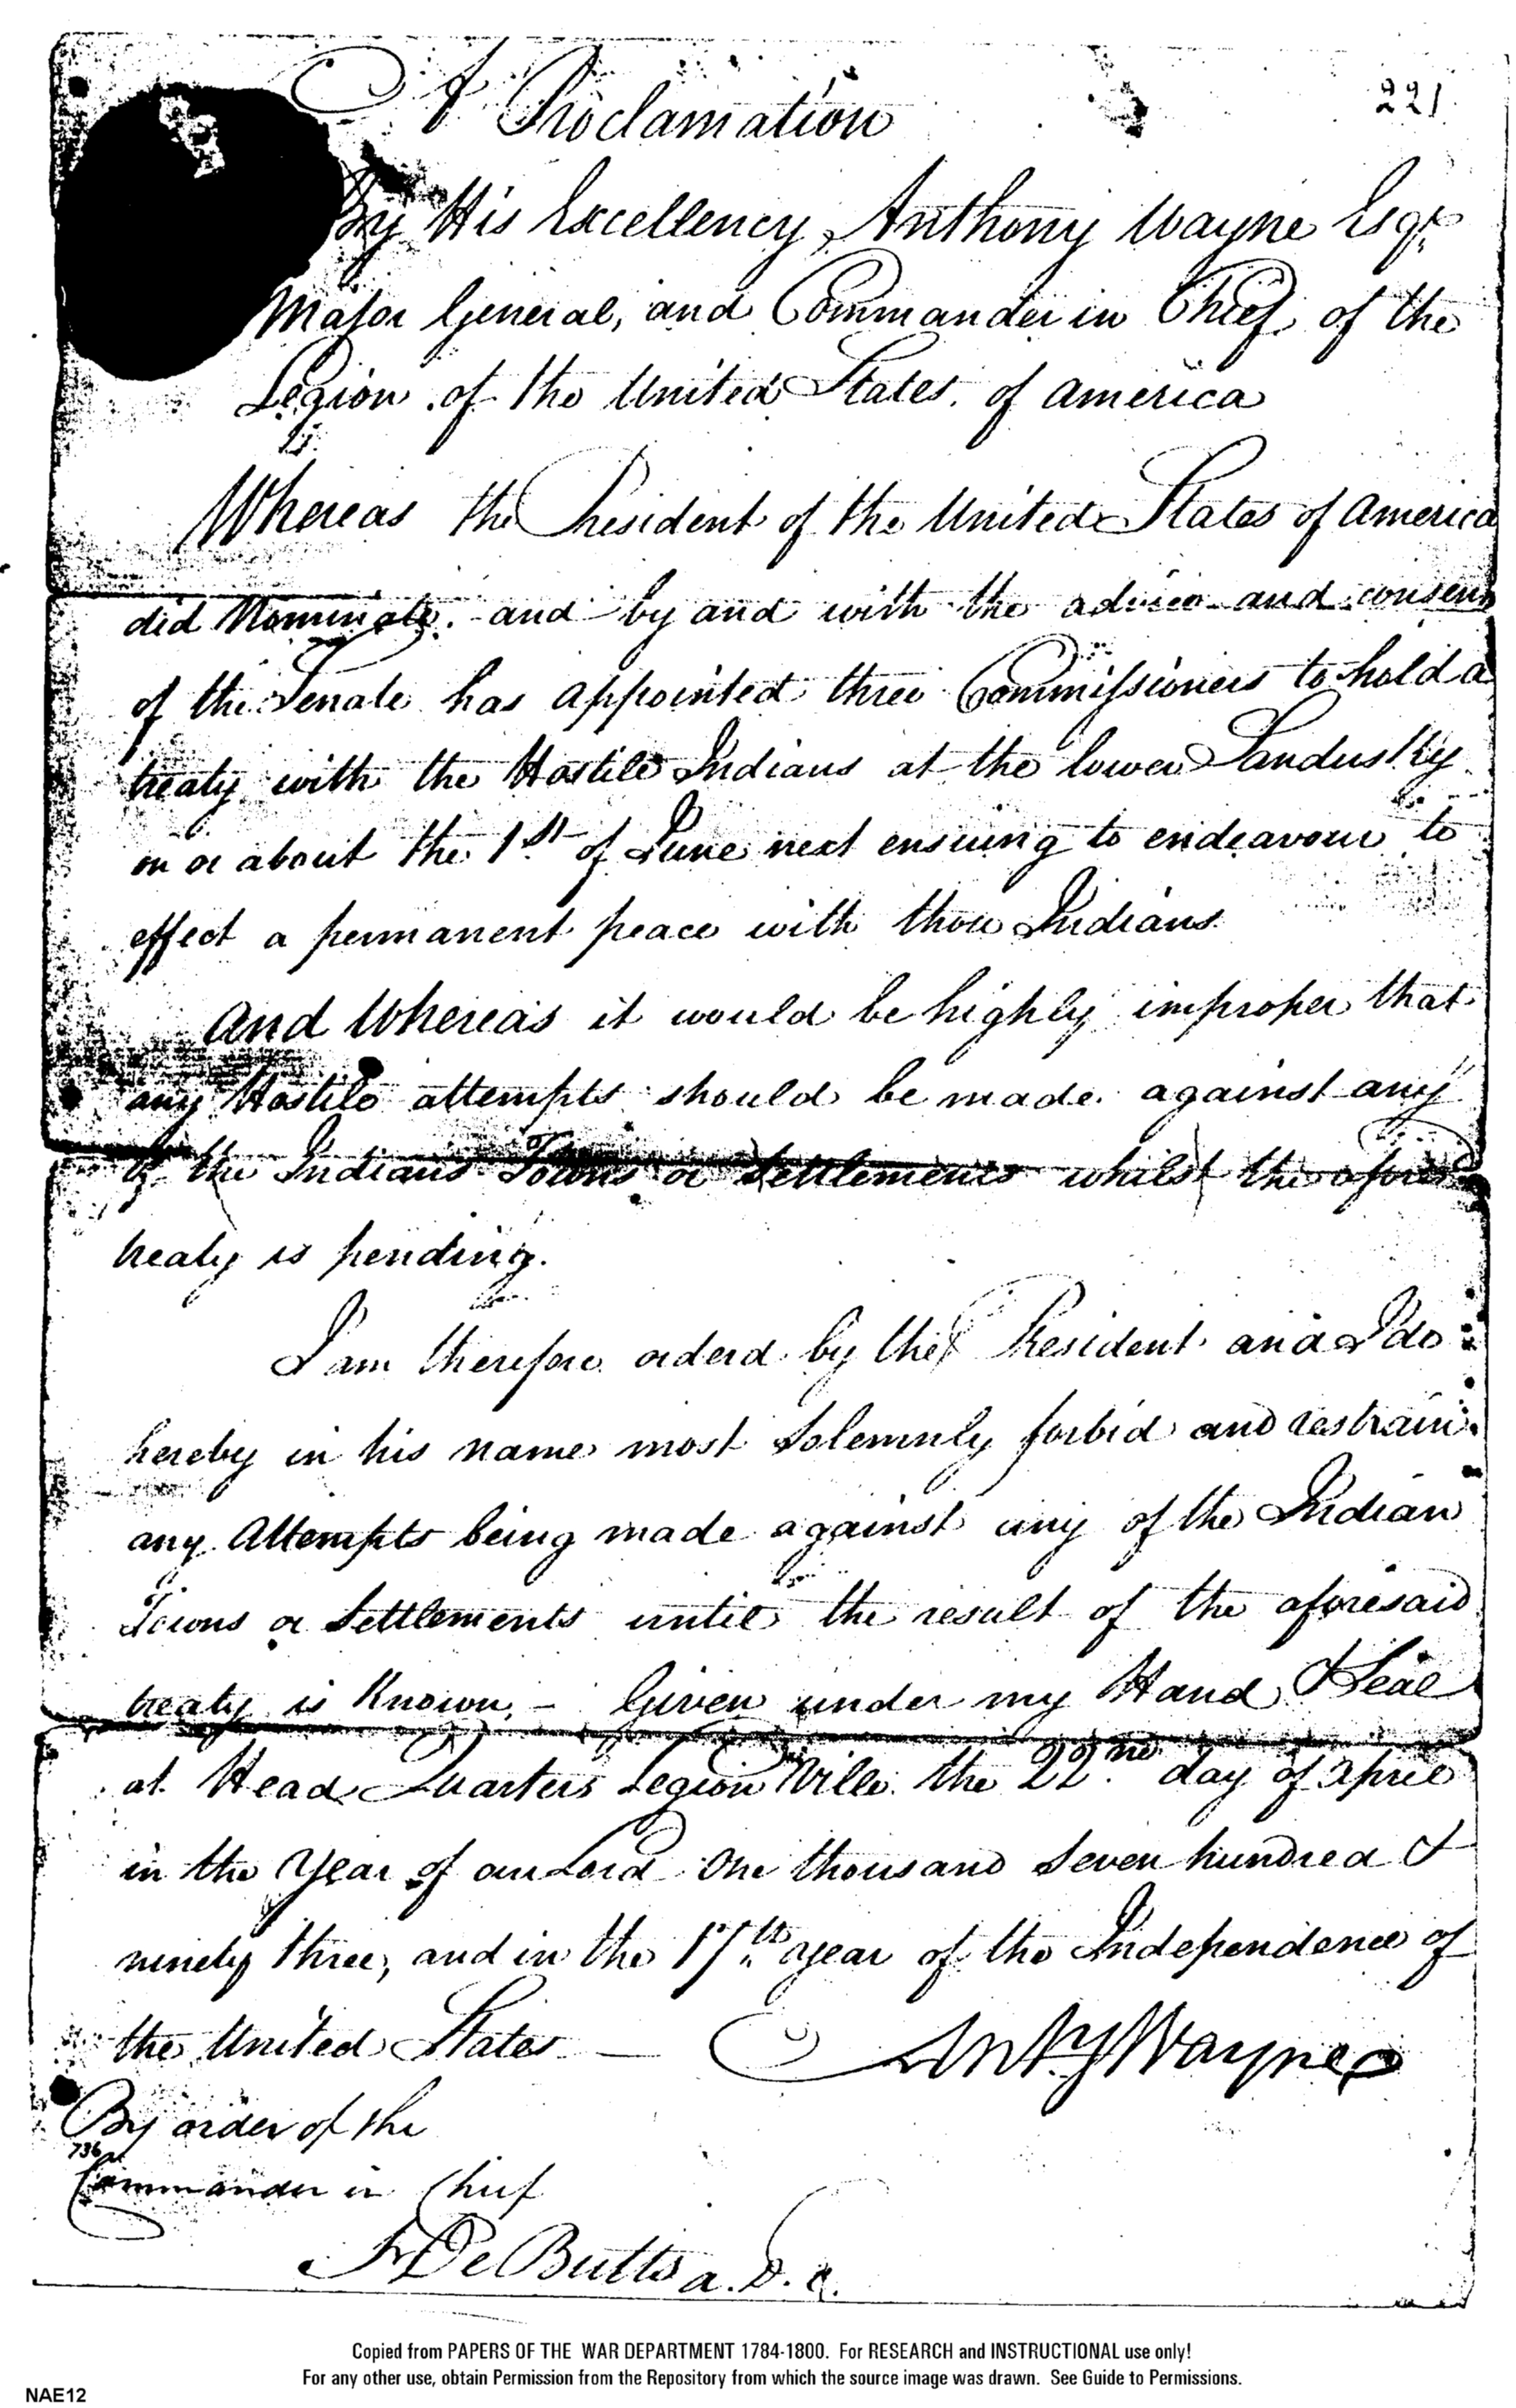 A Proclamation
221
By His Excellency Anthony Wayne Esqr.
Major General, and Commander in Chief of the
Legion of the United States of America
Whereas the President of the United States of America
did Nominate and by and with the advice and consent
of the Senate has appointed three Commissioners to hold a
treaty with the Hostile Indians at the lower Sandusky
on or about the 1st of June next ensuing to endeavour to
effect a permanent peace with those Indians.
And Whereas it would be highly improper that
any Hostile attempts should be made against any
of the Indians Towns or Settlements whilst the afores.
treaty is pending.
I am therefore orderd by the President and I do
hereby in his name most Solemnly forbid and restrain
any Attempts being made against any of the Indian
Towns or Settlements until the result of the aforesaid
treaty is Known, – Given under my Hand & Seal
at Head Quarters Legion Ville the 22nd. day of April
in the Year of our Lord One thousand Seven hundred &
ninety three, and in the 17th. year of the Independence of
the United States —
Anty Wayne
By order of the
736
Commander in Chief
H De Butts a. D. C.
Copied from PAPERS OF THE WAR DEPARTMENT 1784-1800. For RESEARCH and INSTRUCTIONAL use only!
For any other use, obtain Permission from the Repository from which the source image was drawn. See Guide to Permissions.
NAE12